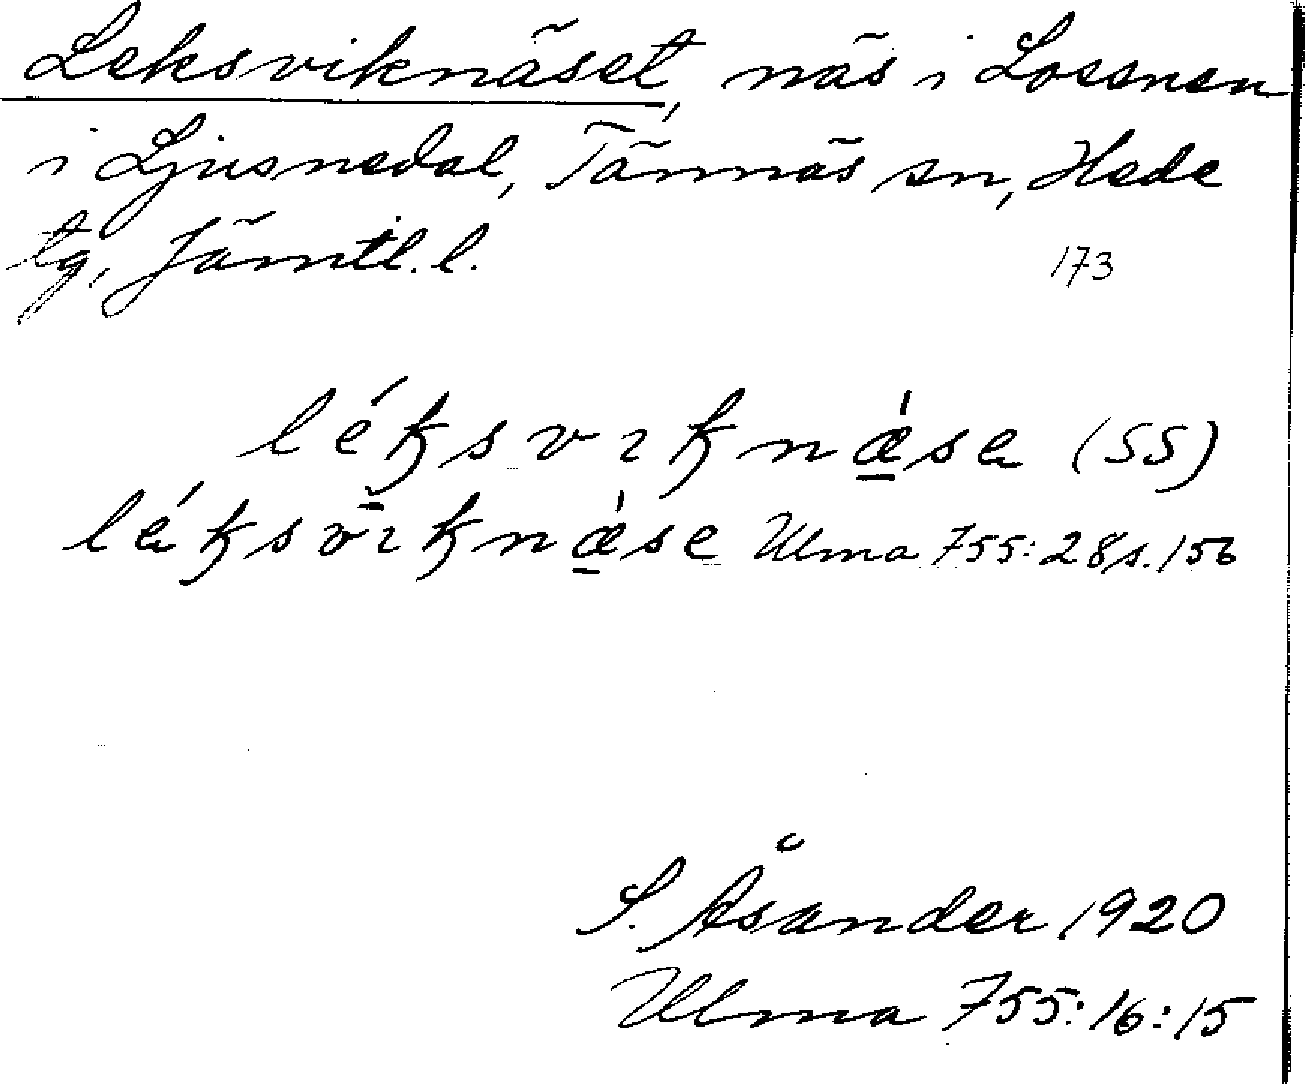 Leksviknäset, näs i Lossnen
i Ljusnedal, Tännäs sn, Hede
tg, Jämtl. l.
173
(SS)
Ulma 755:28 s. 156
S. Åsander 1920
Ulma 755:16:15